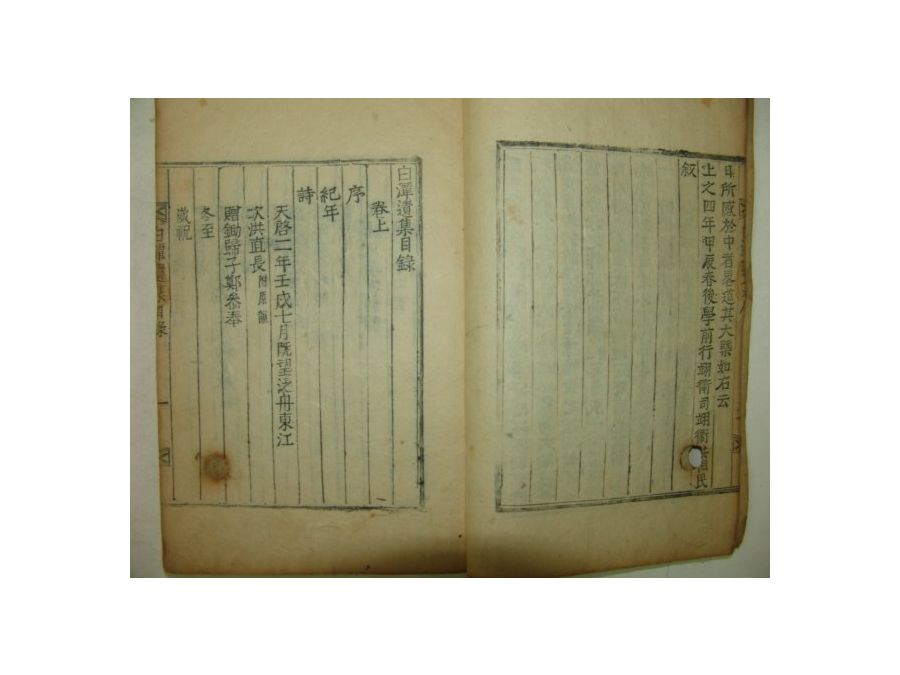 日所感於中者畧道其大槩如右云
上之四年甲辰春後學前行翊衛司翊衛洪 民
敍
白潭遺集目錄
卷上
序
紀年
詩
天啓二年壬戌七月既望泛舟東江
次洪直長 附原韻
贈鋤歸子鄭參奉
冬至
歲祝
白潭遺集目錄 一